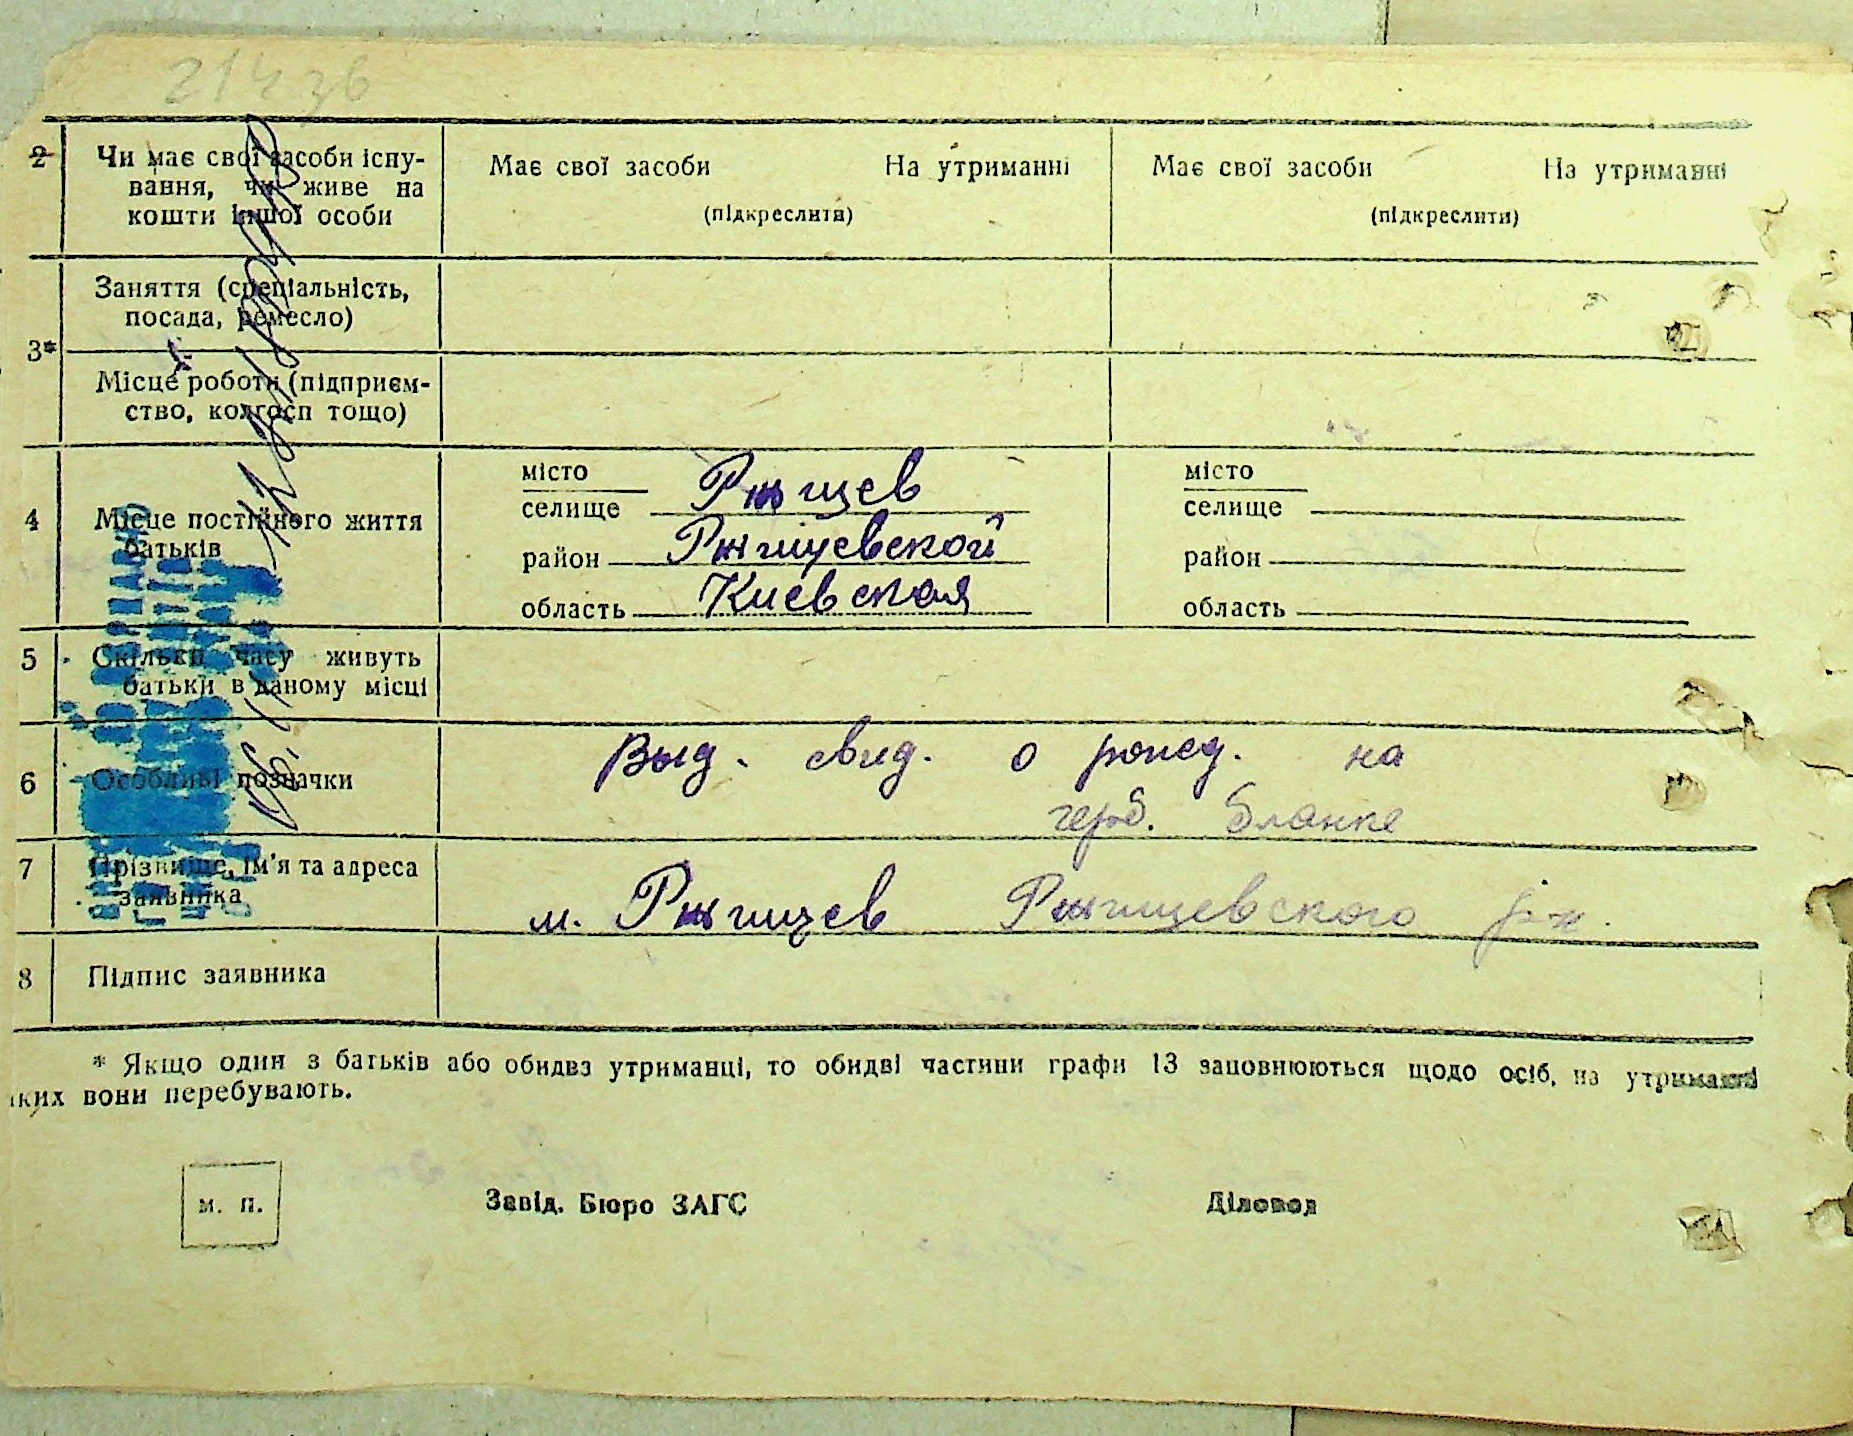 2 Чи має свої засоби існу- Має свої засоби На утриманні Має свої засоби На утриманні
вання, чи живе на
кошти іншої особи (підкреслити) (підкреслити)
Заняття (спеціальність,
посада, ремесло)
3*
Місце роботи (підприєм-
ство, колгосп тощо)
місто місто
селище Ржищев селище
4 Місце постійного життя
батьків
район Ржищевской район
область Киевская область
5 Скільки часу живуть
батьки в даному місці
Выд. свид. о рожд. на
6 Особливі позначки
герб. бланке
7 Прізвище, ім'я та адреса
заявника
м. Ржищев Ржищевского р-н.
8 Підпис заявника
* Якщо один з батьків або обидва утриманці, то обидві частини графи 13 заповнюються щодо осіб, на утриманні
яких вони перебувають.
м. п. Завід. Бюро ЗАГС Діловод